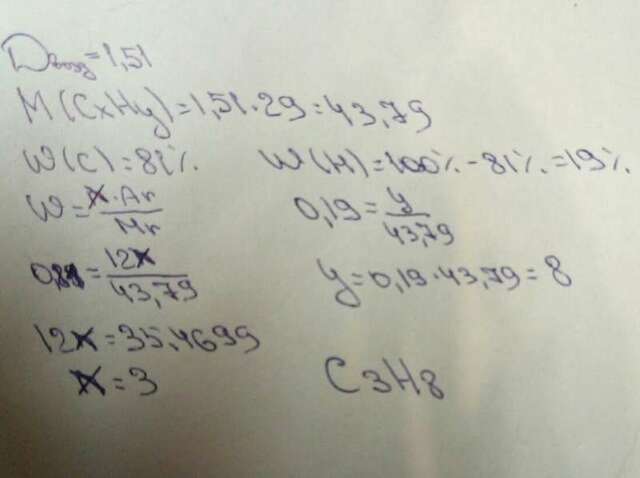 Dвозд=1,51
M(CxHy)=1,51·29=43,79
W(C)=81% W(H)=100%-81%=19%
W=x·Ar/Mr 0,19=y/43,79
0,81=12x/43,79 y=0,19·43,79=8
12x=35,4699
x=3 C3H8